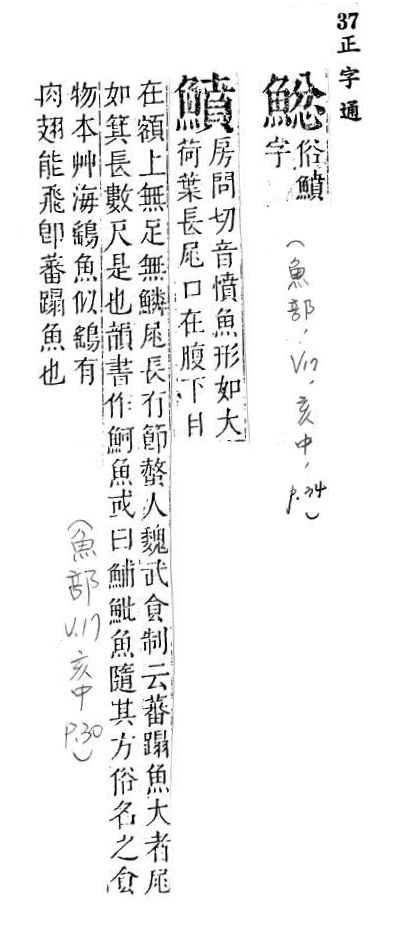 37 正字通
俗鱝
字
（魚部，V.17，亥中，p.34）
鱝
房問切音憤魚形如大
荷葉長尾口在腹下目
在額上無足無鱗尾長有節螫人魏武食制云蕃蹋魚大者尾
如箕長數尺是也韻書作魺魚或曰鯆魮魚隨其方俗名之食
物本艸海鷂魚似鷂有
肉翅能飛卽蕃蹋魚也
（魚部 V.17 亥中 P.30）